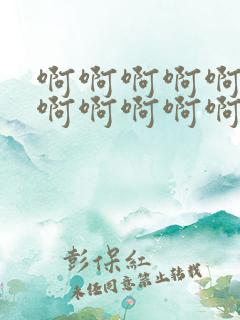 啊啊啊啊啊
啊啊啊啊啊
彭保红
未经同意禁止转载